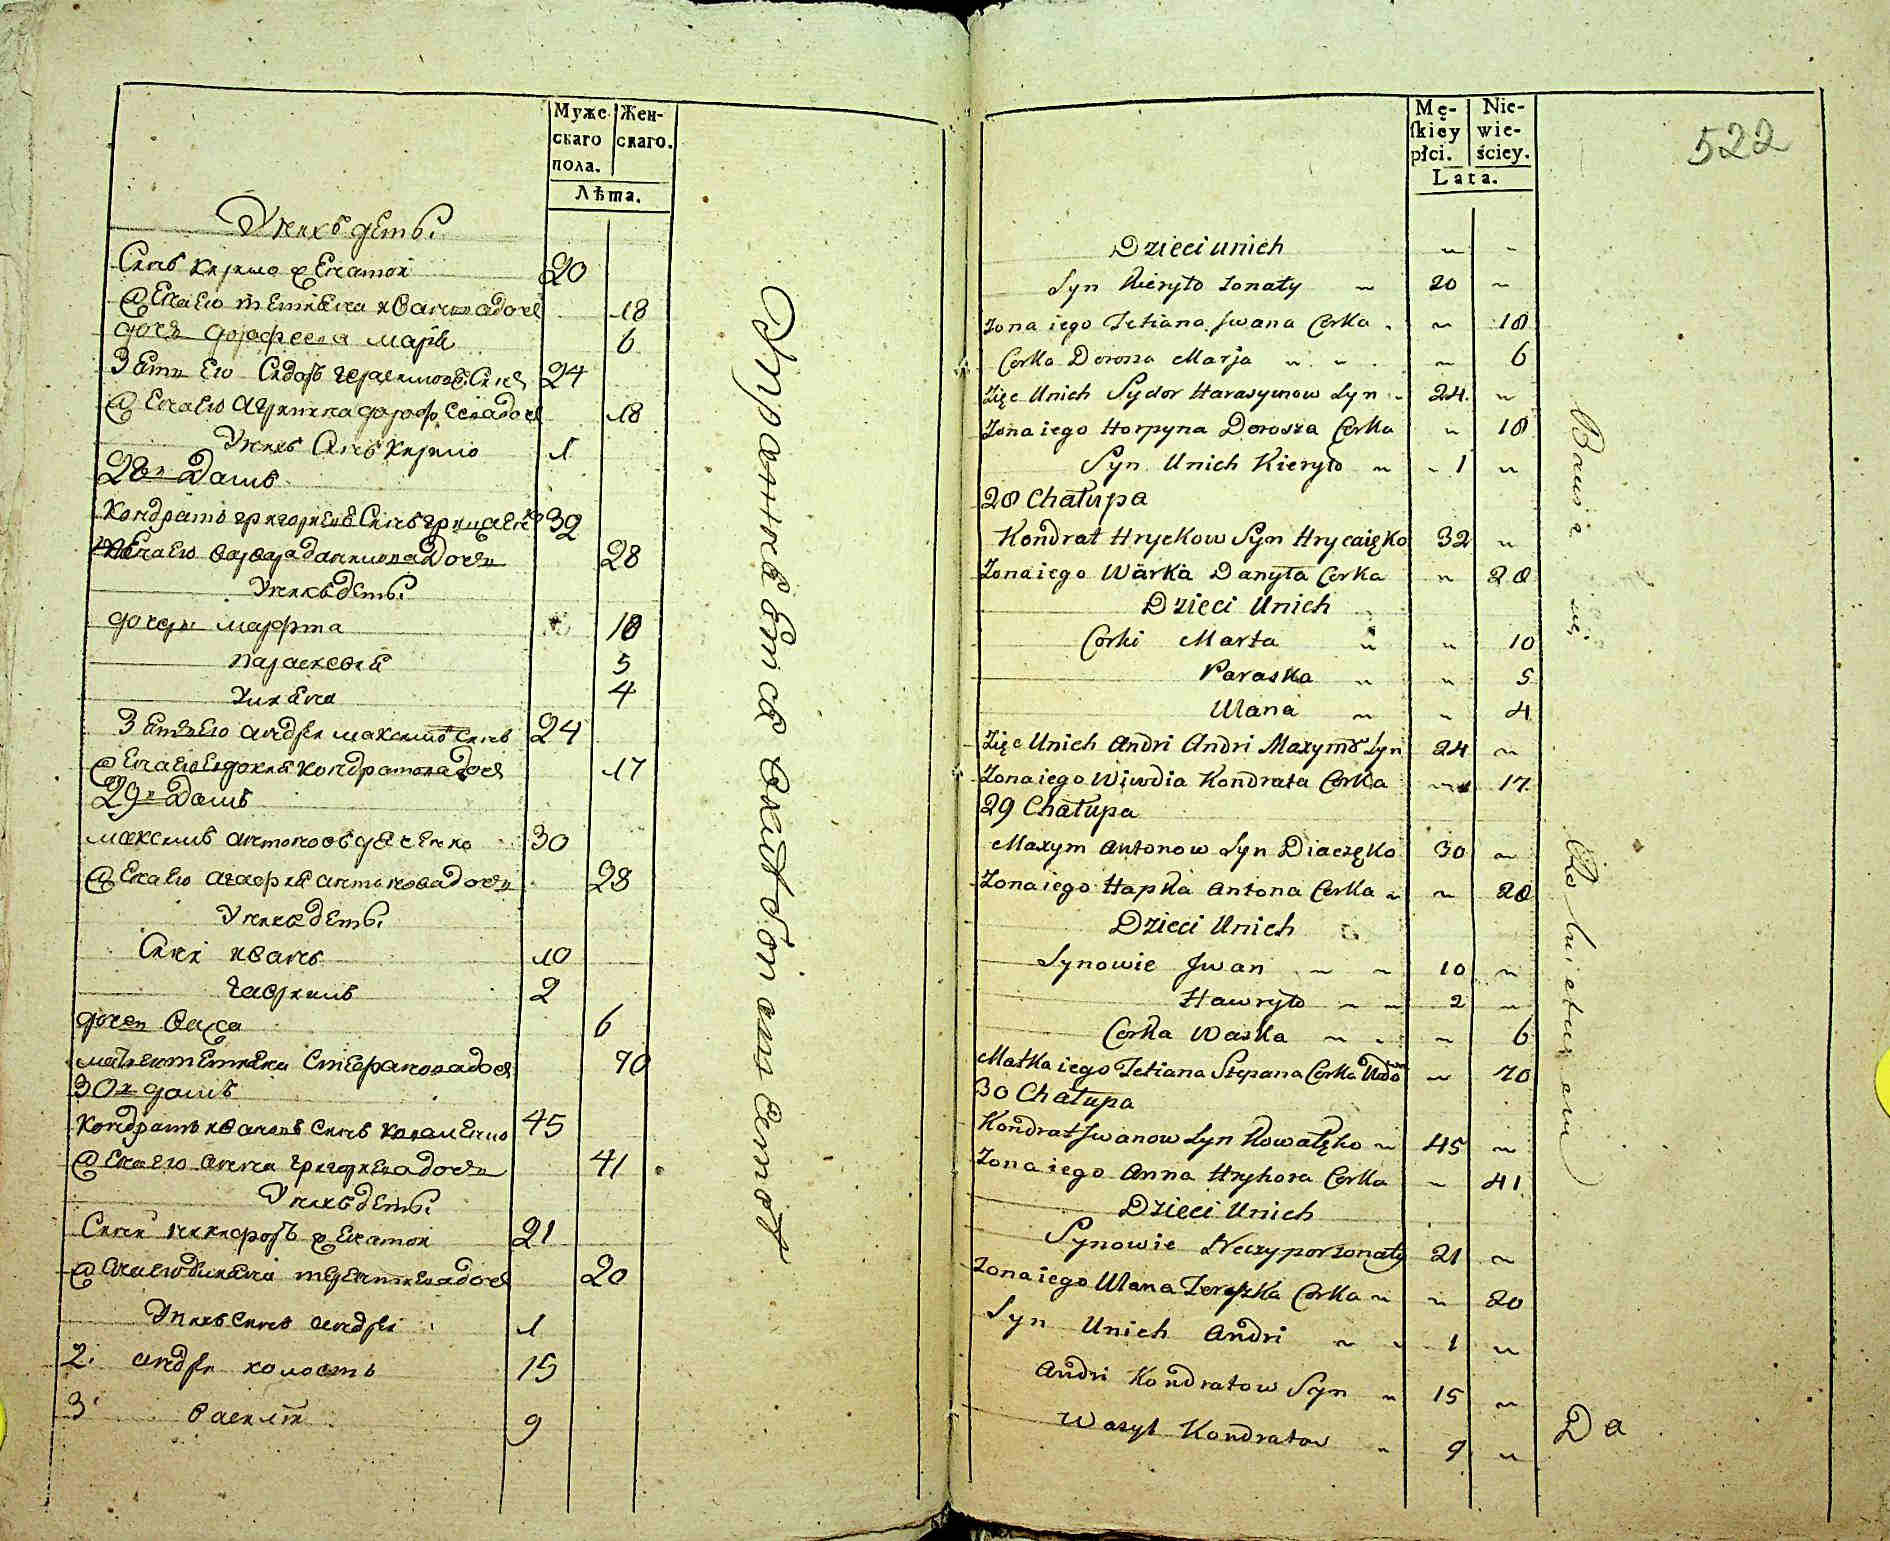 Муже Жен-
скаго скаго.
пола.
Лѣта.
У нихъ дети
Синъ Кирило женатой 20
Жена его Тетияна Иванова дочь 18
дочь дорофеева Мария 6
Зять его Сидоръ Герасимовъ Синъ 24
Жена его Агрипина дорофеева дочь 18
У нихъ Синъ Кирило 1
28й Домъ
Кондратъ Григориевъ Синъ Грицаенко 32
Жена его Варвара данилова Дочь 28
У нихъ дети
дочери Марфта 10
Параскевия 5
Улияна 4
Зять его Андрей Максимовъ Синъ 24
Жена его Евдокия Кондратова дочь 17
29й Домъ
Максимъ Антоновъ дяченко 30
Жена его Агафия Антонова дочь 28
У нихъ дети
Сини Иванъ 10
Гаврилъ 2
дочь Васса 6
мать его Тетияна Степанова дочь 70
30й домъ
Кондратъ Ивановъ Синъ Коваленко 45
Жена его Анна Григориева дочь 41
У нихъ дети
Сини Никифоръ женатой 21
Жена его Улияна Терентиева дочь 20
У нихъ Синъ Андрей 1
2. Андрей холостъ 15
3. Василь 9
Mę- Nie-
ſkiey wie-
płci. ściey.
Lata.
522
Dzieci unich " "
Syn Kieryło żonaty " 20 "
Żona iego Tetiana Jwana Corka " " 18
Corka Dorosza Marja " " " 6
Zięc Unich Sydor Harasymow Syn " 24 "
Żona iego Horpyna Dorosza Corka " 18
Syn Unich Kieryło " " 1 "
28 Chałupa
Kondrat Hryckow Syn Hrycaięko 32 "
Żona iego Warka Danyła Corka " 28
Dzieci Unich
Corki Marta " " 10
Paraska " " 5
Ulana " " 4
Zięc Unich Andri Andri Maxymow Syn 24 "
Żona iego Wiwdia Kondrata Corka " 17
29 Chałupa
Maxym Antonow Syn Diaczęko 30 "
Żona iego Hapka Antona Corka " " 28
Dzieci Unich
Synowie Jwan " " 10 "
Hawryło " " 2 "
Corka Waska " " " 6
Matka iego Tetiana Stepana Corka Wdo " 70
30 Chałupa
Kondrat Jwanow Syn Kowalęko " 45 "
Żona iego Anna Hryhora Corka " 41
Dzieci Unich
Synowie Neczypor żonaty 21 "
Żona iego Ulana Tereszka Corka " " 20
Syn Unich Andri " " 1 "
Andri Kondratow Syn " 15 "
Wasyl Kondratow " 9 "
Da